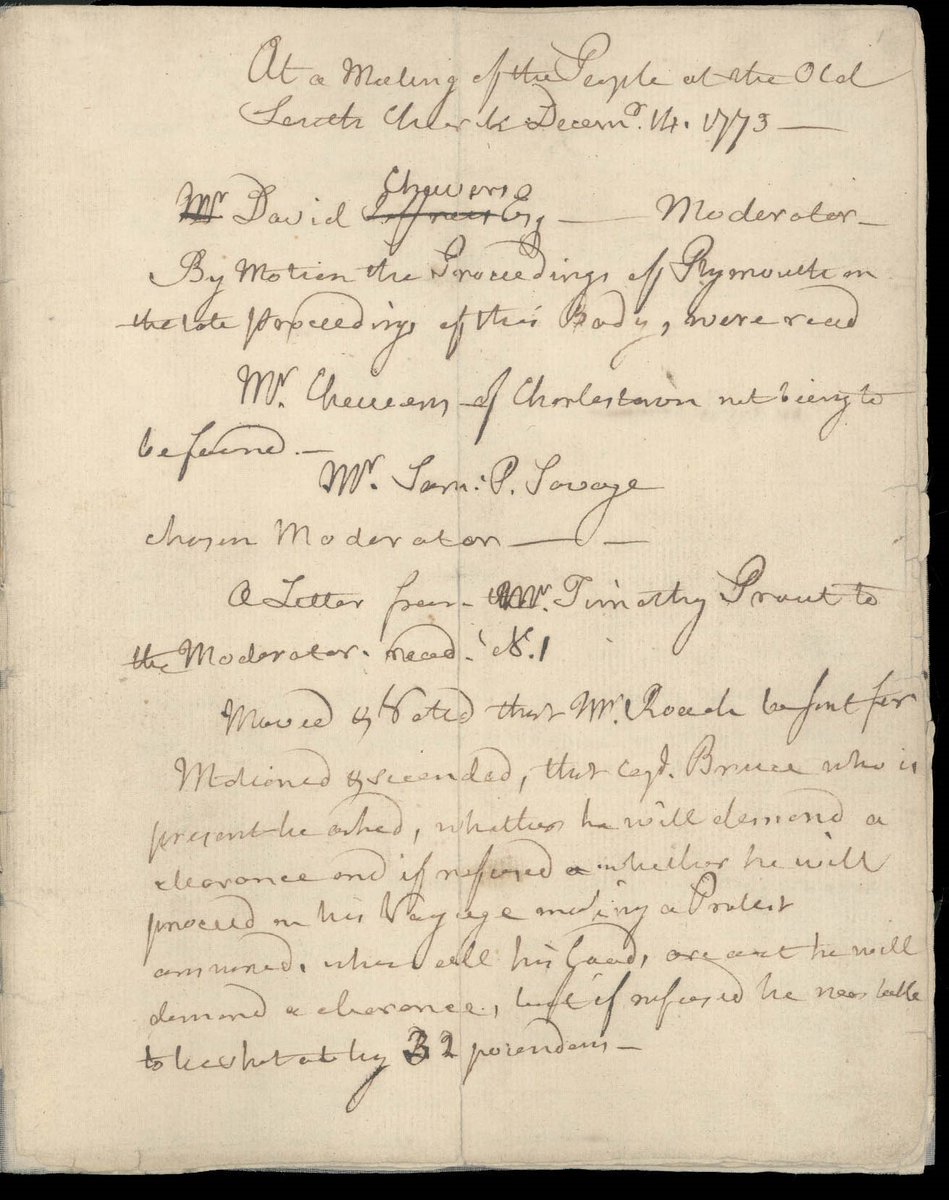 At a Meeting of the People at the Old
South Church Decemr. 14. 1773 —
Mr David Jeffries Chevers Esq — Moderator —
By Motion the Proceedings of Plymouth on
the late proceedings of this Body, were read
Mr. Cheevers of Charlestown not being to
be found. —
Mr. Sam: P. Savage
chosen Moderator — —
A Letter from Mr. Timothy Prout to
the Moderator. read. No. 1
Moved & Voted that Mr. Roach be sent for
Motioned & seconded, that Capt. Bruce who is
present be asked, whether he will demand a
clearance and if refused whether he will
proceed on his Voyage making a Protest
answered, when all his Goods are out he will
demand a clearance, but if refused he
to be shot at by 32 pounders —